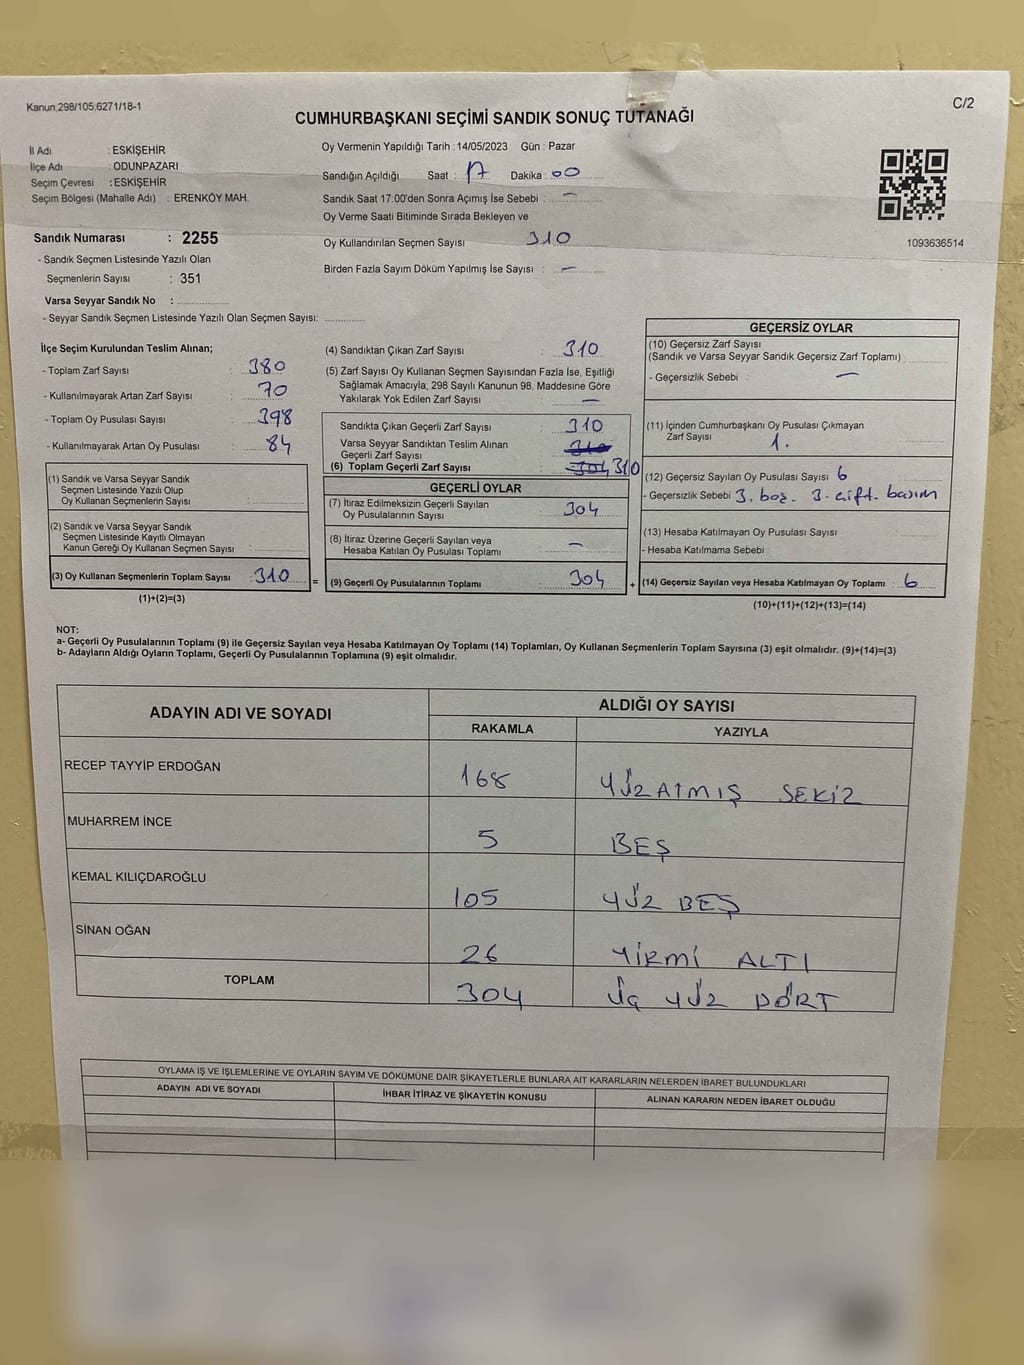 Kanun;298/105;6271/18-1
C/2
CUMHURBAŞKANI SEÇİMİ SANDIK SONUÇ TUTANAĞI
İl Adı : ESKİŞEHİR
İlçe Adı : ODUNPAZARI
Seçim Çevresi : ESKİŞEHİR
Seçim Bölgesi (Mahalle Adı) : ERENKÖY MAH.
Oy Vermenin Yapıldığı Tarih : 14/05/2023 Gün : Pazar
Sandığın Açıldığı Saat : 17 Dakika : 00
Sandık Saat 17:00'den Sonra Açımış İse Sebebi : —
Oy Verme Saati Bitiminde Sırada Bekleyen ve
Oy Kullandırılan Seçmen Sayısı 310
Birden Fazla Sayım Döküm Yapılmış İse Sayısı : —
1093636514
Sandık Numarası : 2255
- Sandık Seçmen Listesinde Yazılı Olan
Seçmenlerin Sayısı : 351
Varsa Seyyar Sandık No :
- Seyyar Sandık Seçmen Listesinde Yazılı Olan Seçmen Sayısı:
İlçe Seçim Kurulundan Teslim Alınan;
- Toplam Zarf Sayısı : 380
- Kullanılmayarak Artan Zarf Sayısı : 70
- Toplam Oy Pusulası Sayısı : 398
- Kullanılmayarak Artan Oy Pusulası : 84
(1) Sandık ve Varsa Seyyar Sandık
Seçmen Listesinde Yazılı Olup
Oy Kullanan Seçmenlerin Sayısı :
(2) Sandık ve Varsa Seyyar Sandık
Seçmen Listesinde Kayıtlı Olmayan
Kanun Gereği Oy Kullanan Seçmen Sayısı :
(3) Oy Kullanan Seçmenlerin Toplam Sayısı : 310
(1)+(2)=(3)
=
(4) Sandıktan Çıkan Zarf Sayısı : 310
(5) Zarf Sayısı Oy Kullanan Seçmen Sayısından Fazla İse, Eşitliği
Sağlamak Amacıyla, 298 Sayılı Kanunun 98. Maddesine Göre
Yakılarak Yok Edilen Zarf Sayısı : —
Sandıkta Çıkan Geçerli Zarf Sayısı : 310
Varsa Seyyar Sandıktan Teslim Alınan
Geçerli Zarf Sayısı : 310
(6) Toplam Geçerli Zarf Sayısı : 304 310
GEÇERLİ OYLAR
(7) İtiraz Edilmeksizin Geçerli Sayılan
Oy Pusulalarının Sayısı : 304
(8) İtiraz Üzerine Geçerli Sayılan veya
Hesaba Katılan Oy Pusulası Toplamı : —
(9) Geçerli Oy Pusulalarının Toplamı : 304
+
GEÇERSİZ OYLAR
(10) Geçersiz Zarf Sayısı
(Sandık ve Varsa Seyyar Sandık Geçersiz Zarf Toplamı)
- Geçersizlik Sebebi : —
(11) İçinden Cumhurbaşkanı Oy Pusulası Çıkmayan
Zarf Sayısı : 1.
(12) Geçersiz Sayılan Oy Pusulası Sayısı : 6
- Geçersizlik Sebebi 3. boş. 3. çift. basım
(13) Hesaba Katılmayan Oy Pusulası Sayısı :
- Hesaba Katılmama Sebebi
(14) Geçersiz Sayılan veya Hesaba Katılmayan Oy Toplamı : 6
(10)+(11)+(12)+(13)=(14)
NOT:
a- Geçerli Oy Pusulalarının Toplamı (9) ile Geçersiz Sayılan veya Hesaba Katılmayan Oy Toplamı (14) Toplamları, Oy Kullanan Seçmenlerin Toplam Sayısına (3) eşit olmalıdır. (9)+(14)=(3)
b- Adayların Aldığı Oyların Toplamı, Geçerli Oy Pusulalarının Toplamına (9) eşit olmalıdır.
ADAYIN ADI VE SOYADI
ALDIĞI OY SAYISI
RAKAMLA YAZIYLA
RECEP TAYYİP ERDOĞAN 168 YÜZATMIŞ SEKİZ
MUHARREM İNCE 5 BEŞ
KEMAL KILIÇDAROĞLU 105 YÜZ BEŞ
SİNAN OĞAN 26 YİRMİ ALTI
TOPLAM 304 ÜÇ YÜZ DÖRT
OYLAMA İŞ VE İŞLEMLERİNE VE OYLARIN SAYIM VE DÖKÜMÜNE DAİR ŞİKAYETLERLE BUNLARA AİT KARARLARIN NELERDEN İBARET BULUNDUKLARI
ADAYIN ADI VE SOYADI İHBAR İTİRAZ VE ŞİKAYETİN KONUSU ALINAN KARARIN NEDEN İBARET OLDUĞU